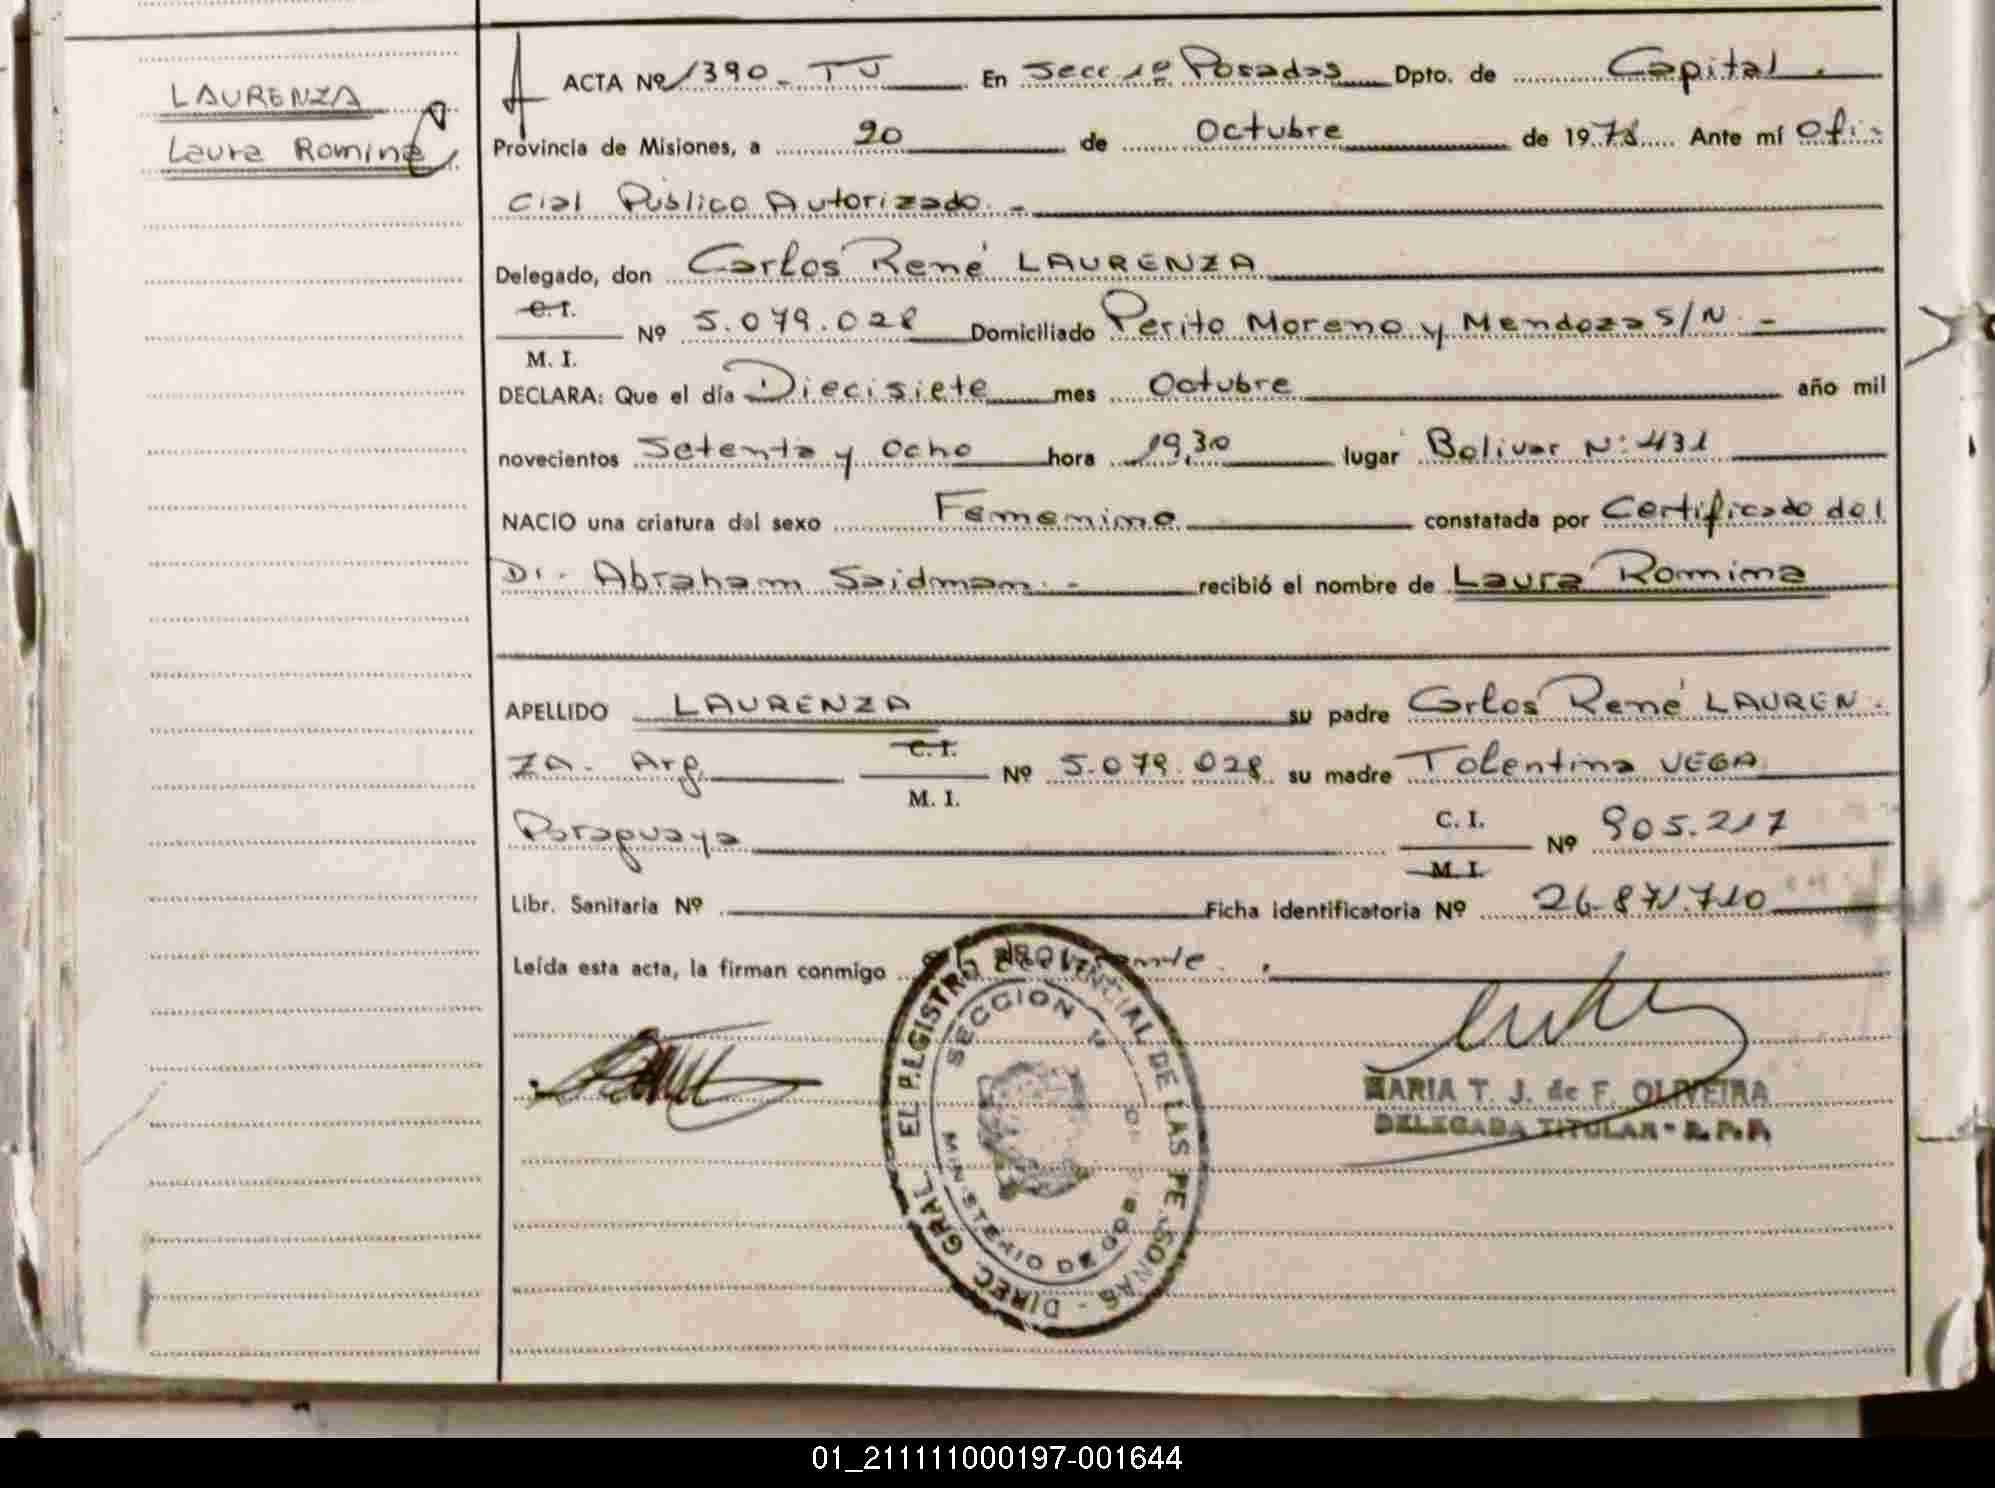 LAURENZA
Laura Romina
ACTA Nº 1390 - TJ En Secc 1ª Posadas Dpto. de Capital.
Provincia de Misiones, a 20 de Octubre de 1978 Ante mí Ofi-
cial Público Autorizado. -
Delegado, don Carlos René LAURENZA
C. I.
M. I.
Nº 5.079.028 Domiciliado Perito Moreno y Mendoza S/N. -
DECLARA: Que el día Diecisiete mes Octubre año mil
novecientos Setenta y Ocho hora 19,30 lugar Bolivar Nº 431
NACIO una criatura del sexo Femenino constatada por Certificado del
Dr. Abraham Saidman. - recibió el nombre de Laura Romina
APELLIDO LAURENZA su padre Carlos René LAUREN-
ZA. Arg. C. I. Nº 5.079.028 su madre Tolentina VEGA
M. I.
Paraguaya C. I. Nº 905.217
M. I.
Libr. Sanitaria Nº Ficha identificatoria Nº 26.871.710
Leída esta acta, la firman conmigo
DIREC. GRAL. DEL REGISTRO PROVINCIAL DE LAS PERSONAS -
SECCION 1ª
MINISTERIO DE GOB.
MARIA T. J. de F. OLIVEIRA
DELEGADA TITULAR - R. P. P.
01_211111000197-001644